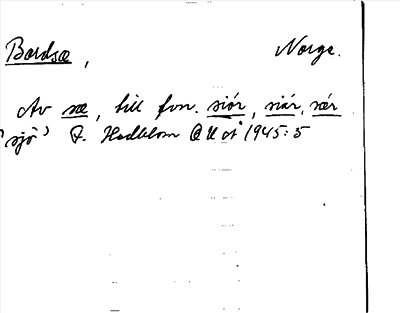 Bardsæ, Norge.
Av sæ, till fvn. siór, siár, sær
'sjö' F. Hedblom OUÅ 1945:5